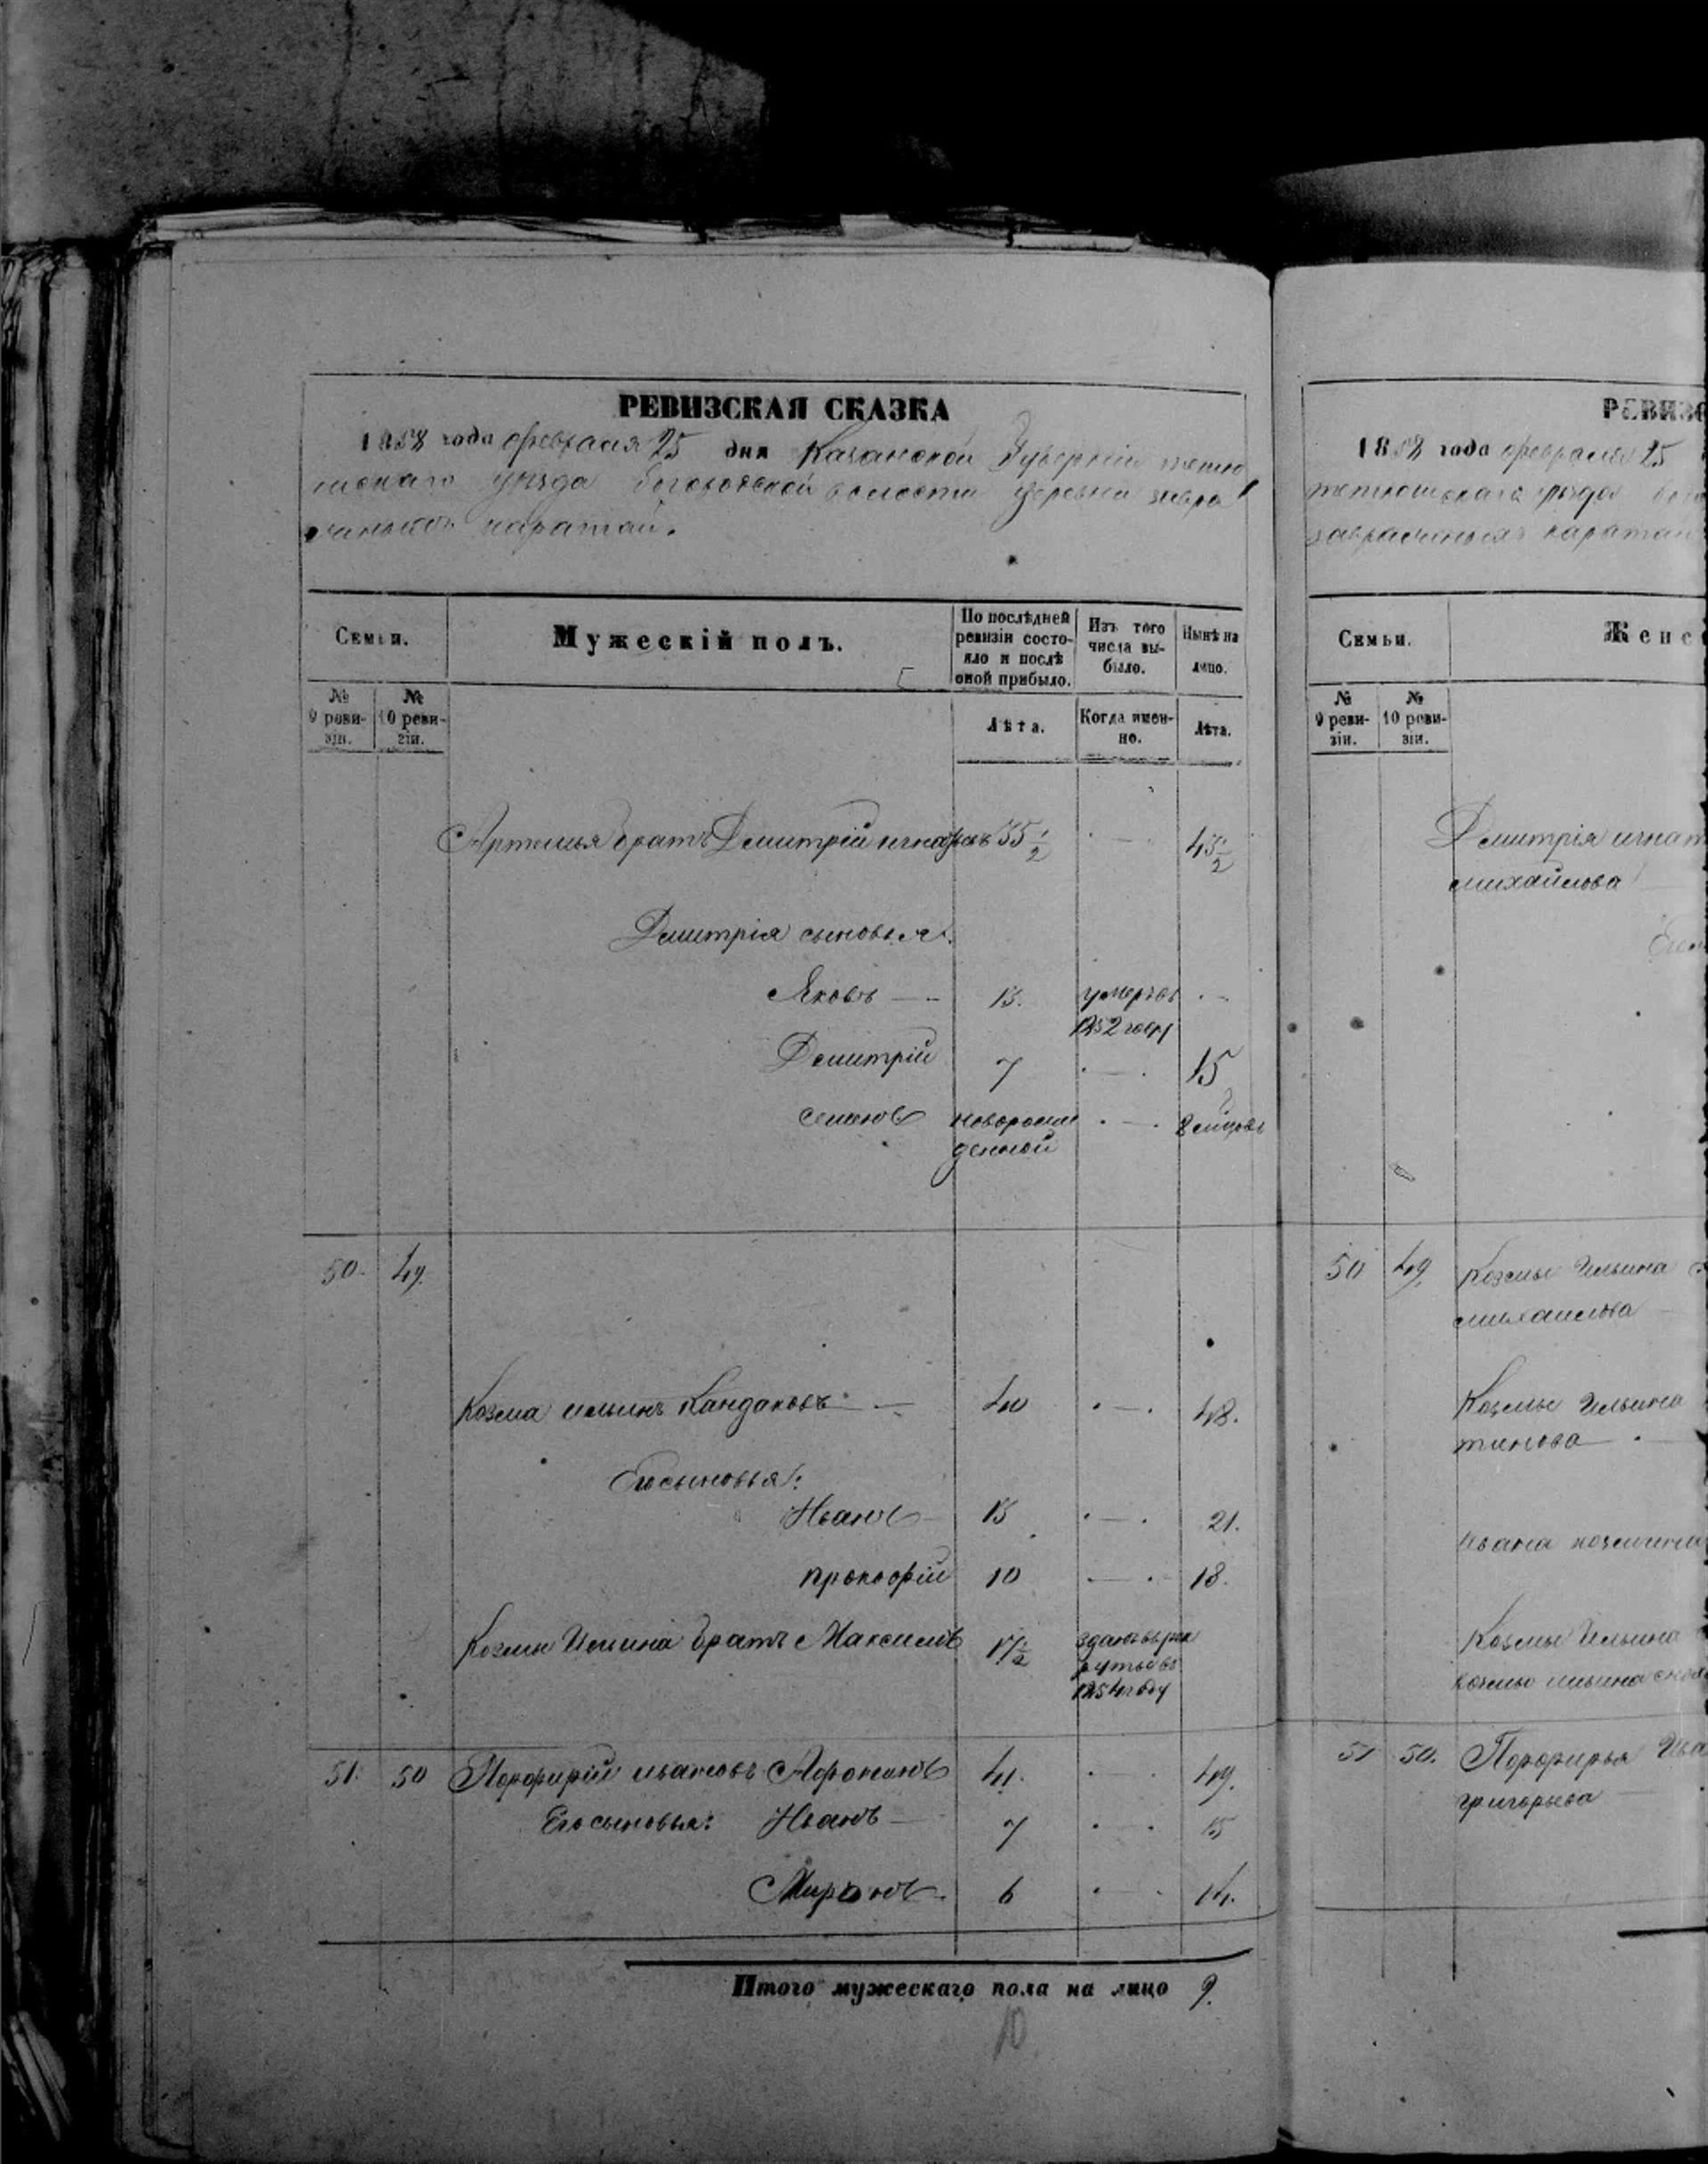 РЕВИЗСКАЯ СКАЗКА
1858 года февраля 25 дня Казанской Губерніи тетю
шскаго уѣзда Богородской волости деревни завра
каратай.
Семьи.
Мужескій полъ.
По послѣдней
ревизіи состо-
яло и послѣ
оной прибыло.
Изъ того
числа вы-
было.
Нынѣ на
лицо.
№
9 реви-
зіи.
№
10 реви-
зіи.
Лѣта.
Когда имен-
но.
Лѣта.
Артемья братъ Дмитрій игнатьевъ 35 1/2 43 1/2
Дмитрія сыновья:
Яковъ 13. умеръ въ
1852 году
Дмитрій 7 15
новорож
денной
50. 49.
Козма ильинъ Кандаковъ 40 48.
Его сыновья:
Иванъ 13 21.
прокофій 10 18.
Козмы Ильина братъ Максимъ 17 1/2 зданъ въ рек
руты въ
1854 году
51. 50 Порфирій ивановъ 41. 49.
Его сыновья: Иванъ 7 15
Миронъ 6 14.
Итого мужескаго пола на лицо 9.
10
РЕВИЗС
1858 года февраля 25
тетюшскаго уѣзда
каратаи
Семьи.
Женс
№
9 реви-
зіи.
№
10 реви-
зіи.
Дмитрія игнат
михайлова
50 49. Козмы Ильина
михаилова
Козмы Ильина
тинова
Ивана козмина
Козмы Ильина
козмы ильина
51 50. Порфирья Ива
григорьева